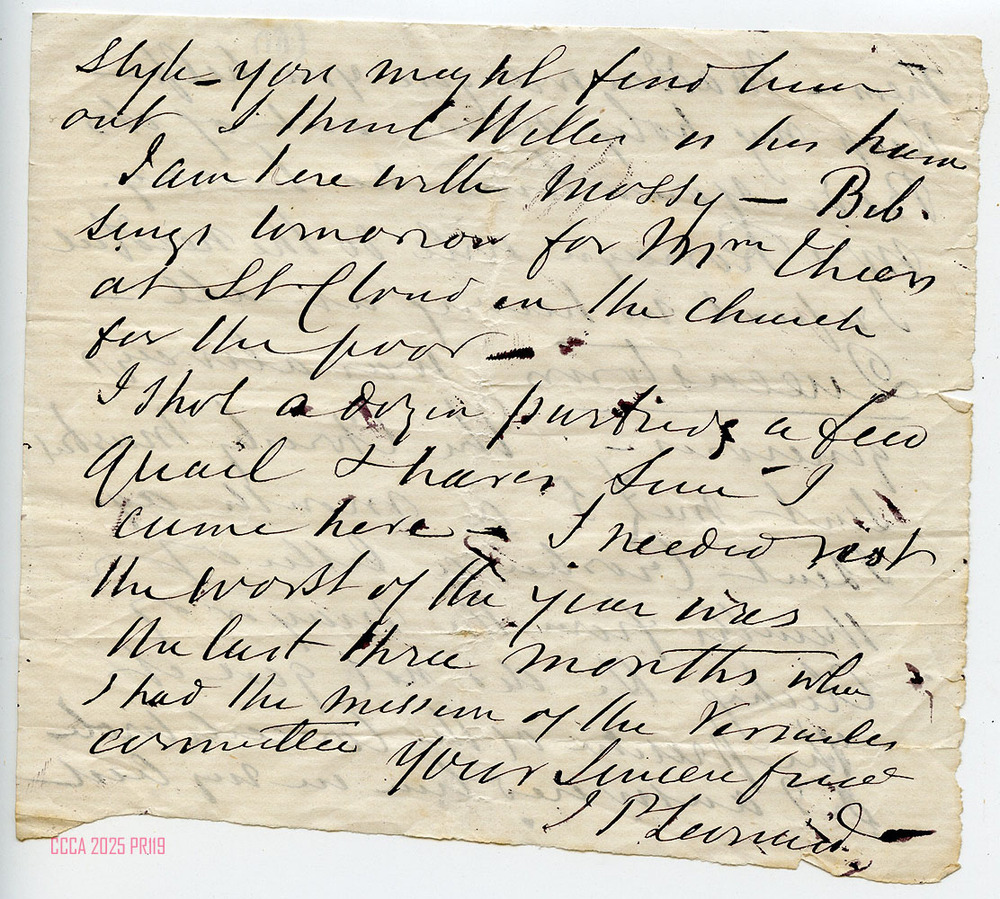 style - you might find him
out I think Willie is his name
I am here with Mossy - Bib.
sings tomorrow for Mme Thiers
at St Cloud in the church
for the poor -
I shot a dozen partridge a few
quail & hares since I
came here - I needed rest
the worst of the year was
the last three months when
I had the mission of the Versailles
committee Your sincere friend
J P Leonard -
CCCA 2025 PR119